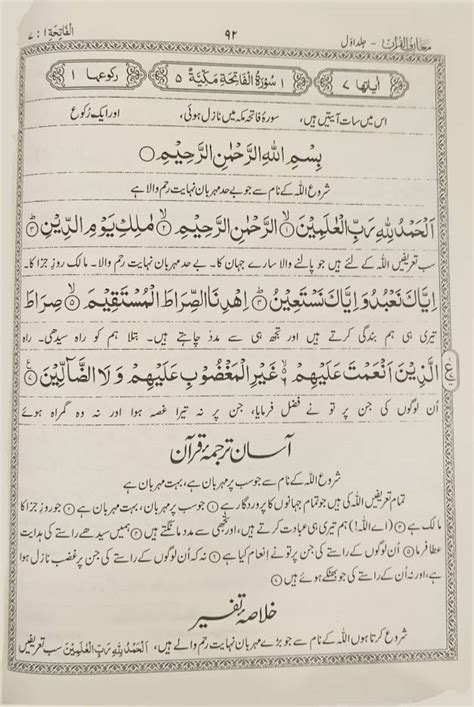 معارف القرآن - جلد اوّل ۹۲ الفَاتِحَة ۱ : ۷
اٰیاتہا ۷ ۱ سُوۡرَۃُ الۡفَاتِحَۃِ مَکِّیَّۃٌ ۵ رکوعہا ۱
اس میں سات آیتیں ہیں، سورۂ فاتحہ مکہ میں نازل ہوئی، اور ایک رُکوع
بِسْمِ اللّٰهِ الرَّحْمٰنِ الرَّحِیْمِ ○
شروع اللہ کے نام سے جو بے حد مہربان نہایت رحم والا ہے
اَلْحَمْدُ لِلّٰهِ رَبِّ الْعٰلَمِیْنَ ۙ﴿۱﴾ الرَّحْمٰنِ الرَّحِیْمِ ۙ﴿۲﴾ مٰلِكِ یَوْمِ الدِّیْنِ ؕ﴿۳﴾
سب تعریفیں اللہ کے لئے ہیں جو پالنے والا سارے جہان کا۔ بے حد مہربان نہایت رحم والا۔ مالک روزِ جزا کا۔
اِیَّاكَ نَعْبُدُ وَاِیَّاكَ نَسْتَعِیْنُ ؕ﴿۴﴾ اِهْدِنَا الصِّرَاطَ الْمُسْتَقِیْمَ ۙ﴿۵﴾ صِرَاطَ
تیری ہی ہم بندگی کرتے ہیں اور تجھ ہی سے مدد چاہتے ہیں۔ بتلا ہم کو راہ سیدھی۔ راہ
الَّذِیْنَ اَنْعَمْتَ عَلَیْهِمْ ۙ۬﴿۶﴾ غَیْرِ الْمَغْضُوْبِ عَلَیْهِمْ وَلَا الضَّآلِّیْنَ ﴿۷﴾
اُن لوگوں کی جن پر تو نے فضل فرمایا، جن پر نہ تیرا غصہ ہوا اور نہ وہ گمراہ ہوئے
آسان ترجمۂ قرآن
شروع اللہ کے نام سے جو سب پر مہربان ہے، بہت مہربان ہے
تمام تعریفیں اللہ کی ہیں جو تمام جہانوں کا پروردگار ہے ﴿۱﴾ جو سب پر مہربان ہے، بہت مہربان ہے ﴿۲﴾ جو روزِ جزا کا
مالک ہے ﴿۳﴾ (اے اللہ!) ہم تیری ہی عبادت کرتے ہیں، اور تجھی سے مدد مانگتے ہیں ﴿۴﴾ ہمیں سیدھے راستے کی ہدایت
عطا فرما ﴿۵﴾ اُن لوگوں کے راستے کی جن پر تو نے انعام کیا ہے ﴿۶﴾ نہ کہ اُن لوگوں کے راستے کی جن پر غضب نازل ہوا
ہے، اور نہ اُن کے راستے کی جو بھٹکے ہوئے ہیں ﴿۷﴾
خلاصۂ تفسیر
شروع کرتا ہوں اللہ کے نام سے جو بڑے مہربان نہایت رحم والے ہیں، اَلْحَمْدُ لِلّٰهِ رَبِّ الْعٰلَمِیْنَ سب تعریفیں